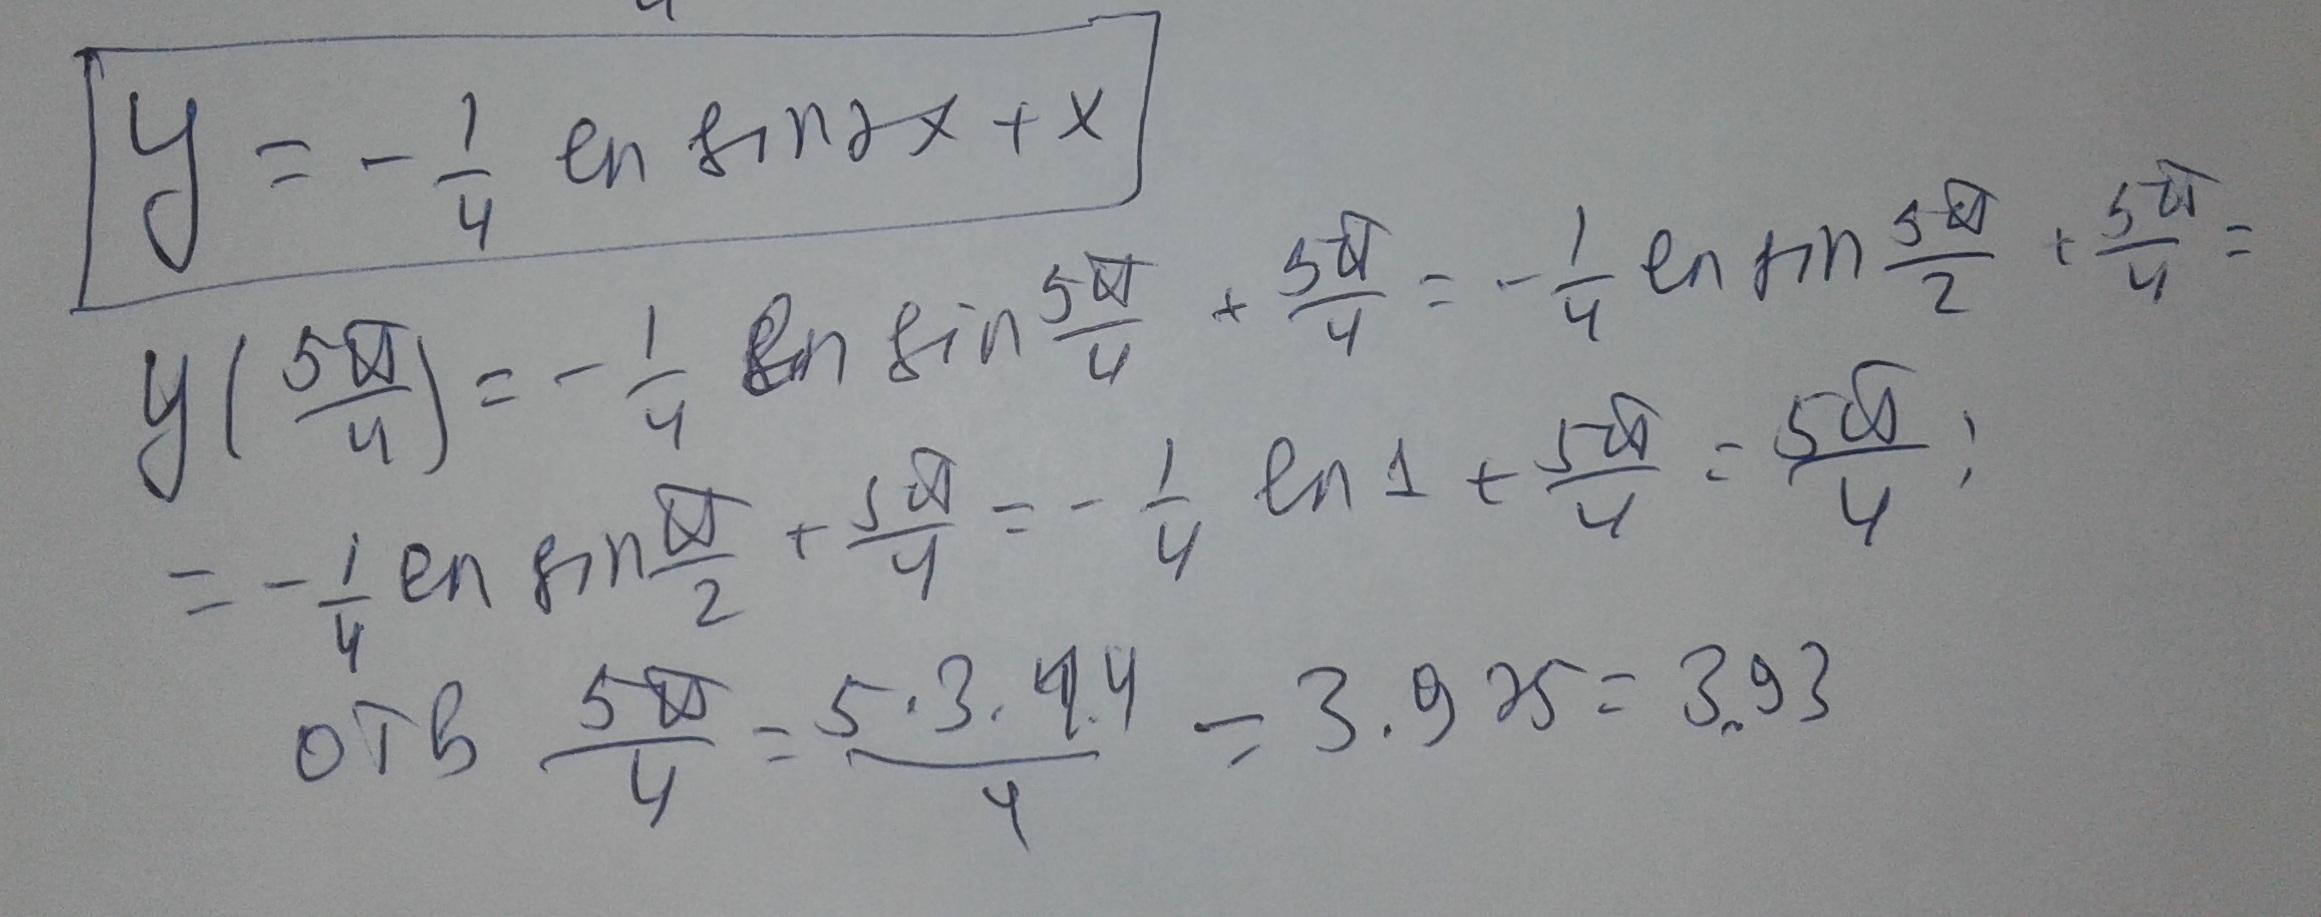 y = - 1/4 ln sin2x + x
y(5π/4) = - 1/4 ln sin 5π/4 + 5π/4 = - 1/4 ln sin 5π/2 + 5π/4 =
= - 1/4 ln sin π/2 + 5π/4 = - 1/4 ln 1 + 5π/4 = 5π/4;
отв 5π/4 = /4 = 3.925 = 3.93